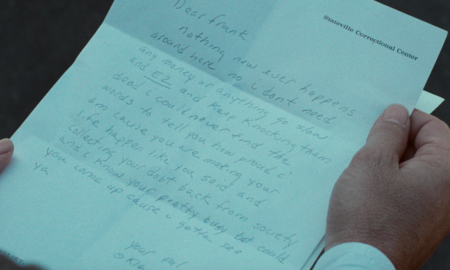 Stateville Correctional Center
Dear Frank
nothing new ever happens
around here no i dont need
any money or anything so slow
and EZ and keep knocking them
dead i could never find the
words to tell you how proud i
am cause you are making your
life happen like you said and
collecting your debt back from society
and i know your pretty busy but could
you come up cause i gotta see
ya
your pal